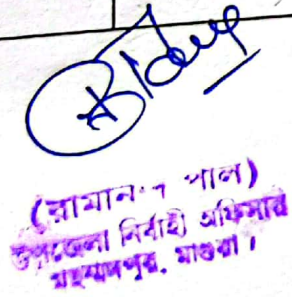 (রামান পাল)
উপজেলা নির্বাহী অফিসার
মহম্মদপুর, মাগুরা।